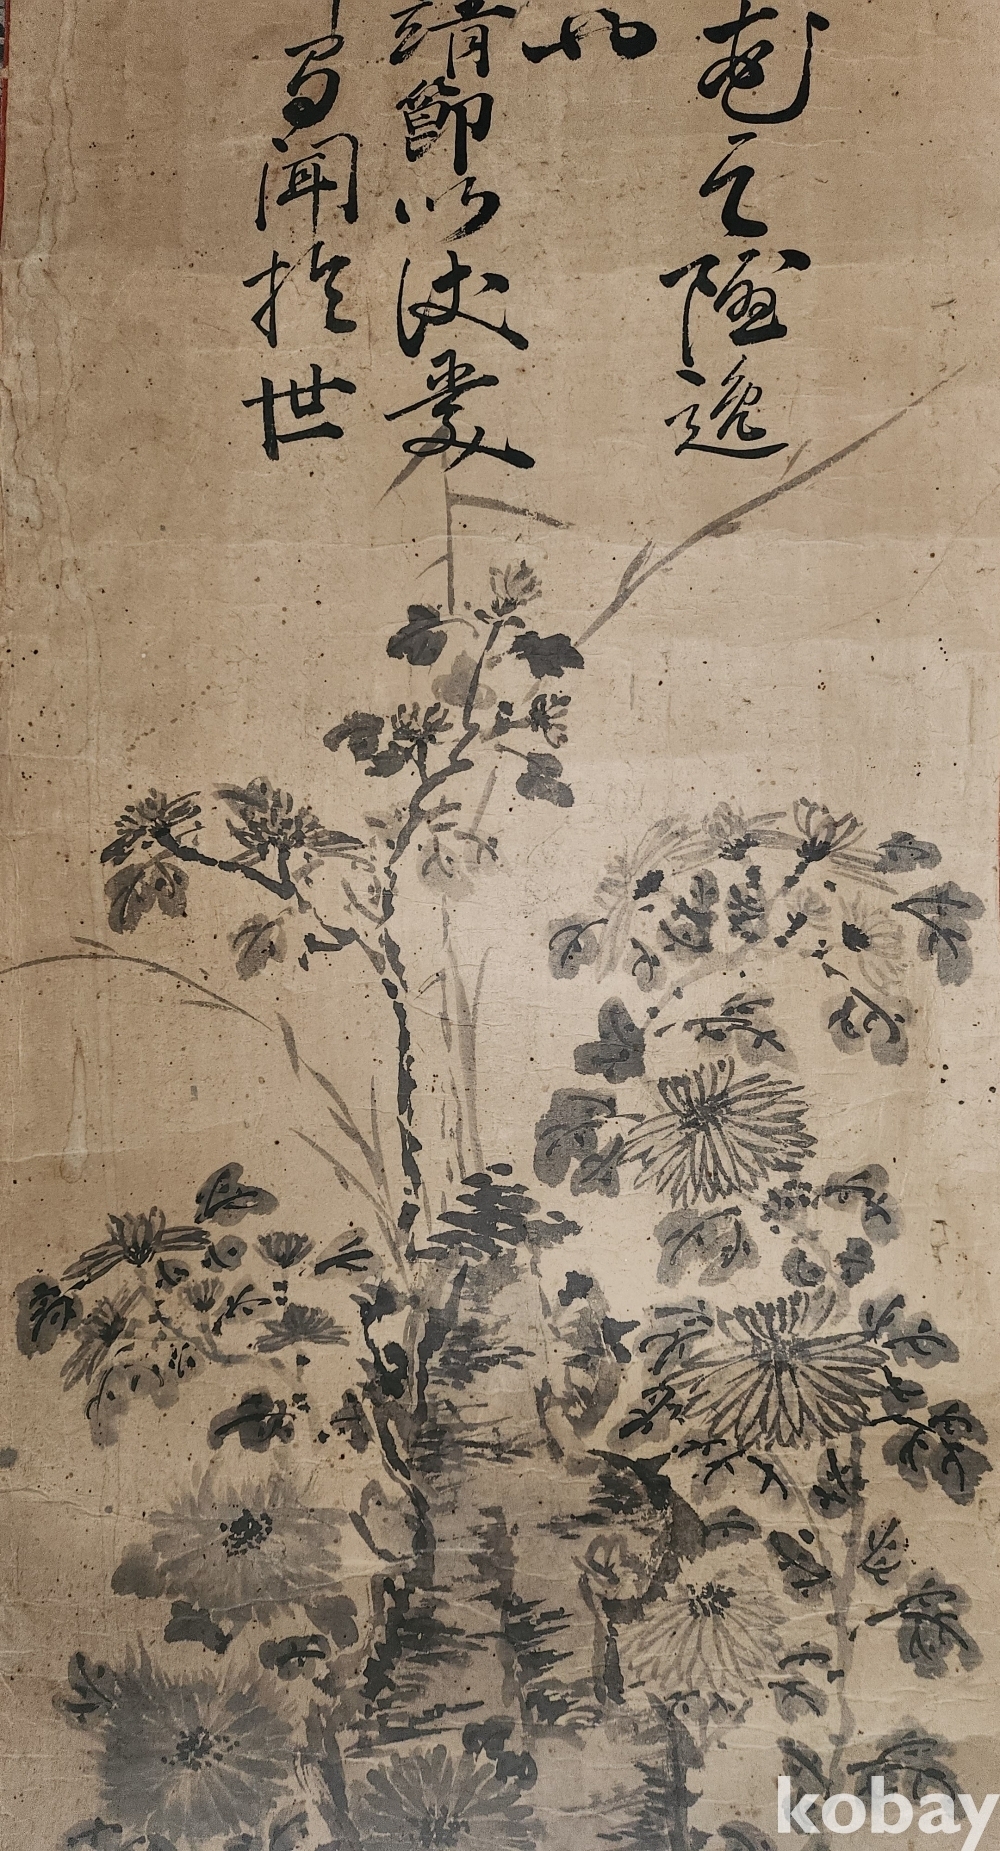 花之隱逸
也
靖節以後愛
蜀聞於世
kobay